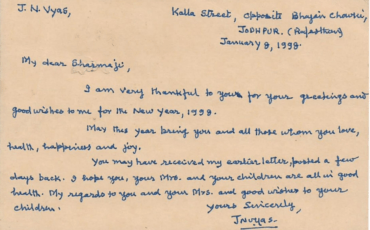 J. N. Vyas,
Kalla Street, Opposite Bhajan Chowki,
JODHPUR. (Rajasthan)
January 9, 1998.
My dear Sharmaji,
I am very thankful to you for your greetings and
good wishes to me for the New Year, 1998.
May this year bring you and all those whom you love,
health, happiness and joy.
You may have received my earlier letter, posted a few
days back. I hope you, your Mrs. and your children are all in good
health. My regards to you and your Mrs. and good wishes to your
children.
Yours Sincerely,
JNVyas.